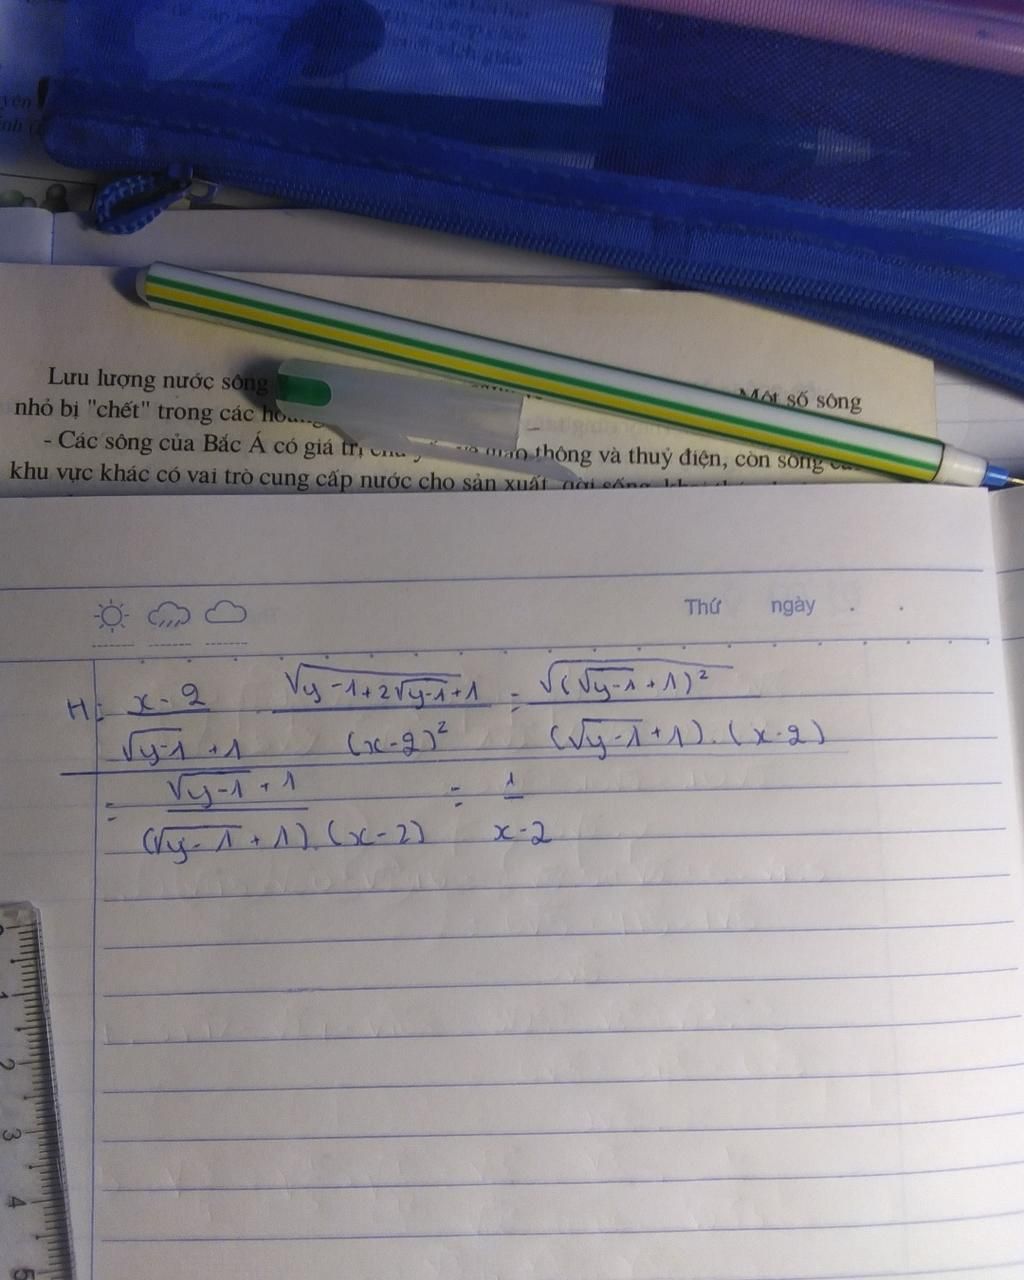 Lưu lượng nước sông Một số sông
nhỏ bị "chết" trong các
- Các sông của Bắc Á có giá trị thông và thuỷ điện, còn sông
khu vực khác có vai trò cung cấp nước cho sản xuất, sống,
Thứ ngày . .
H = \frac{x-2}{\sqrt{y-1}+1} \frac{\sqrt{y-1+2\sqrt{y-1}+1}}{(x-2)^2} = \frac{\sqrt{(\sqrt{y-1}+1)^2}}{(\sqrt{y-1}+1).(x-2)}
= \frac{\sqrt{y-1}+1}{(\sqrt{y-1}+1).(x-2)} = \frac{1}{x-2}
1
2
3
4
5